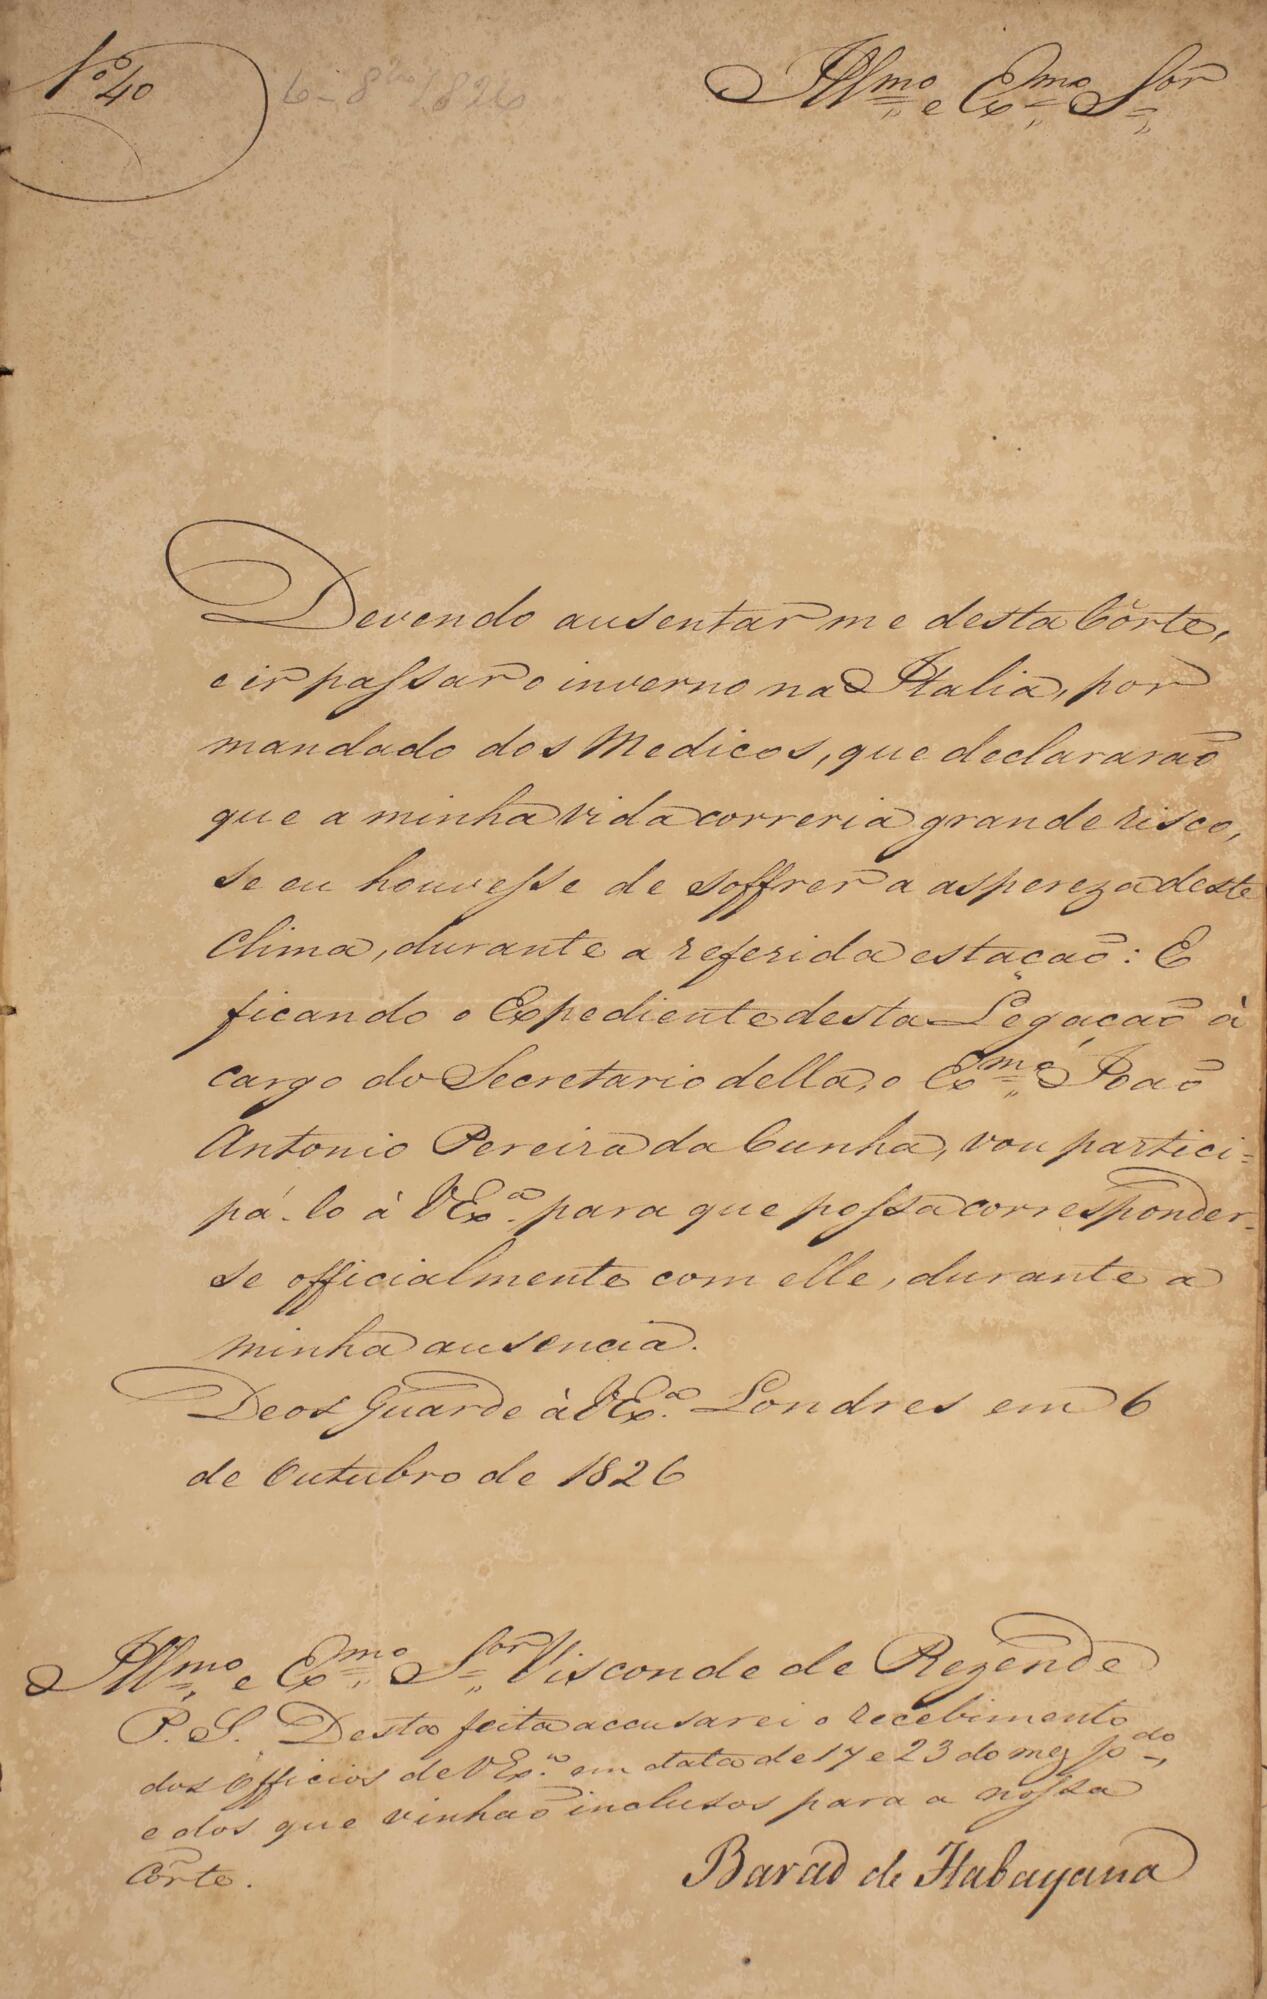 Nº 40
6-8bro 1826
Illmo e Exmo Sor
Devendo ausentar me desta Côrte,
e ir passar o inverno na Italia, por
mandado dos Medicos, que declararaõ
que a minha vida correria grande risco,
se eu houvesse de soffrer a aspereza deste
Clima, durante a referida estaçaõ: E
ficando o Expediente desta Legaçaõ à
cargo do Secretario della, o Exmo Joaõ
Antonio Pereira da Cunha, vou partici=
pá-lo à VExa. para que possa corresponder-
se officialmente com elle, durante a
minha ausencia.
Deos Guarde à VExa. Londres em 6
de Outubro de 1826
Illmo e Exmo Sor Visconde de Rezende
P. S. Desta feita accusarei o recebimento
dos Officios de VExa. em data de 17 e 23 do mez pdo,
e dos que vinhaõ inclusos para a nossa
Côrte.
Baraõ de Itabayana